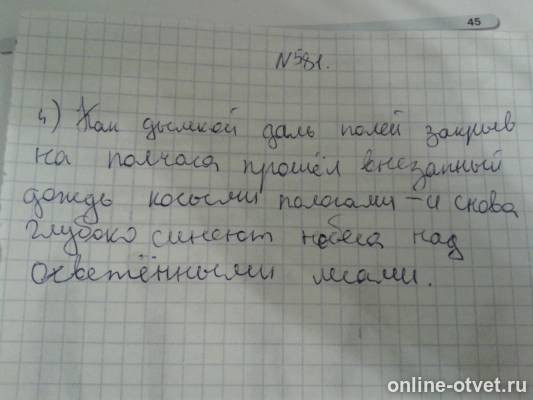 45
N581.
4) Как дымкой даль полей закрыв
на полчаса прошёл внезапный
дождь косыми полосами – и снова
глубоко синеют небеса над
освежёнными лесами.
online-otvet.ru